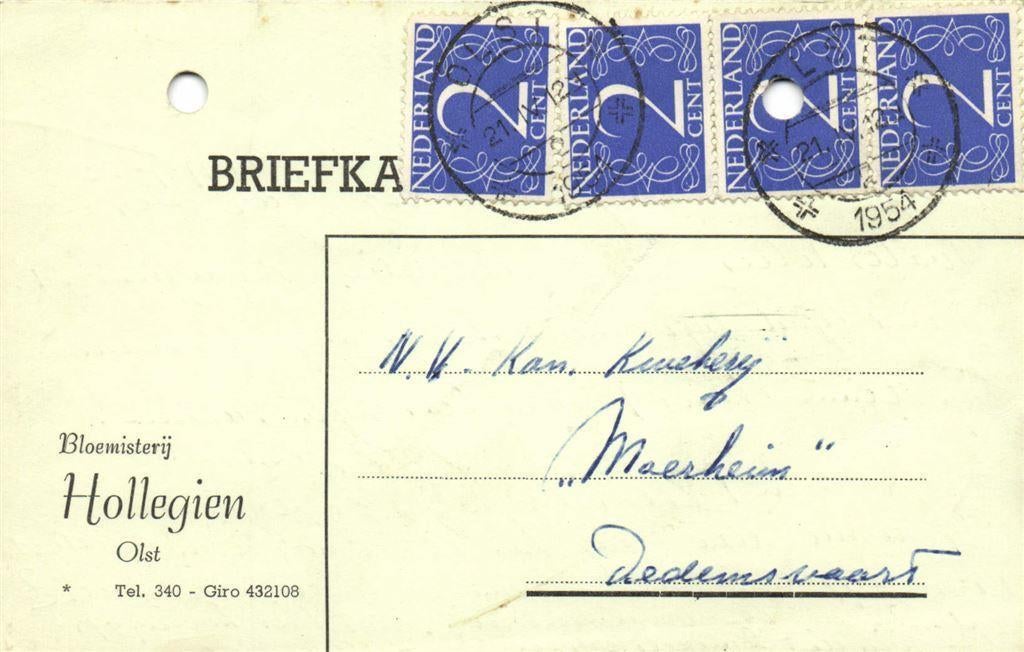 NEDERLAND 2 CENT NEDERLAND 2 CENT NEDERLAND 2 CENT NEDERLAND 2 CENT
OLST
1954
BRIEFKA
N.V. Kon. Kweekerij
„Moerheim"
Dedemsvaart
Bloemisterij
Hollegien
Olst
* Tel. 340 - Giro 432108